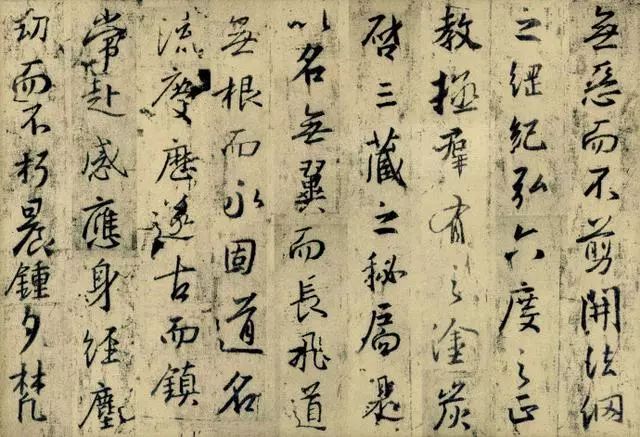 無惡而不翦開法網
之綱紀弘六度之正
教拯羣有之塗炭
啓三藏之秘扃是
以名無翼而長飛道
無根而永固道名
流慶歷遂古而鎮
常赴感應身經塵
劫而不朽晨鍾夕梵